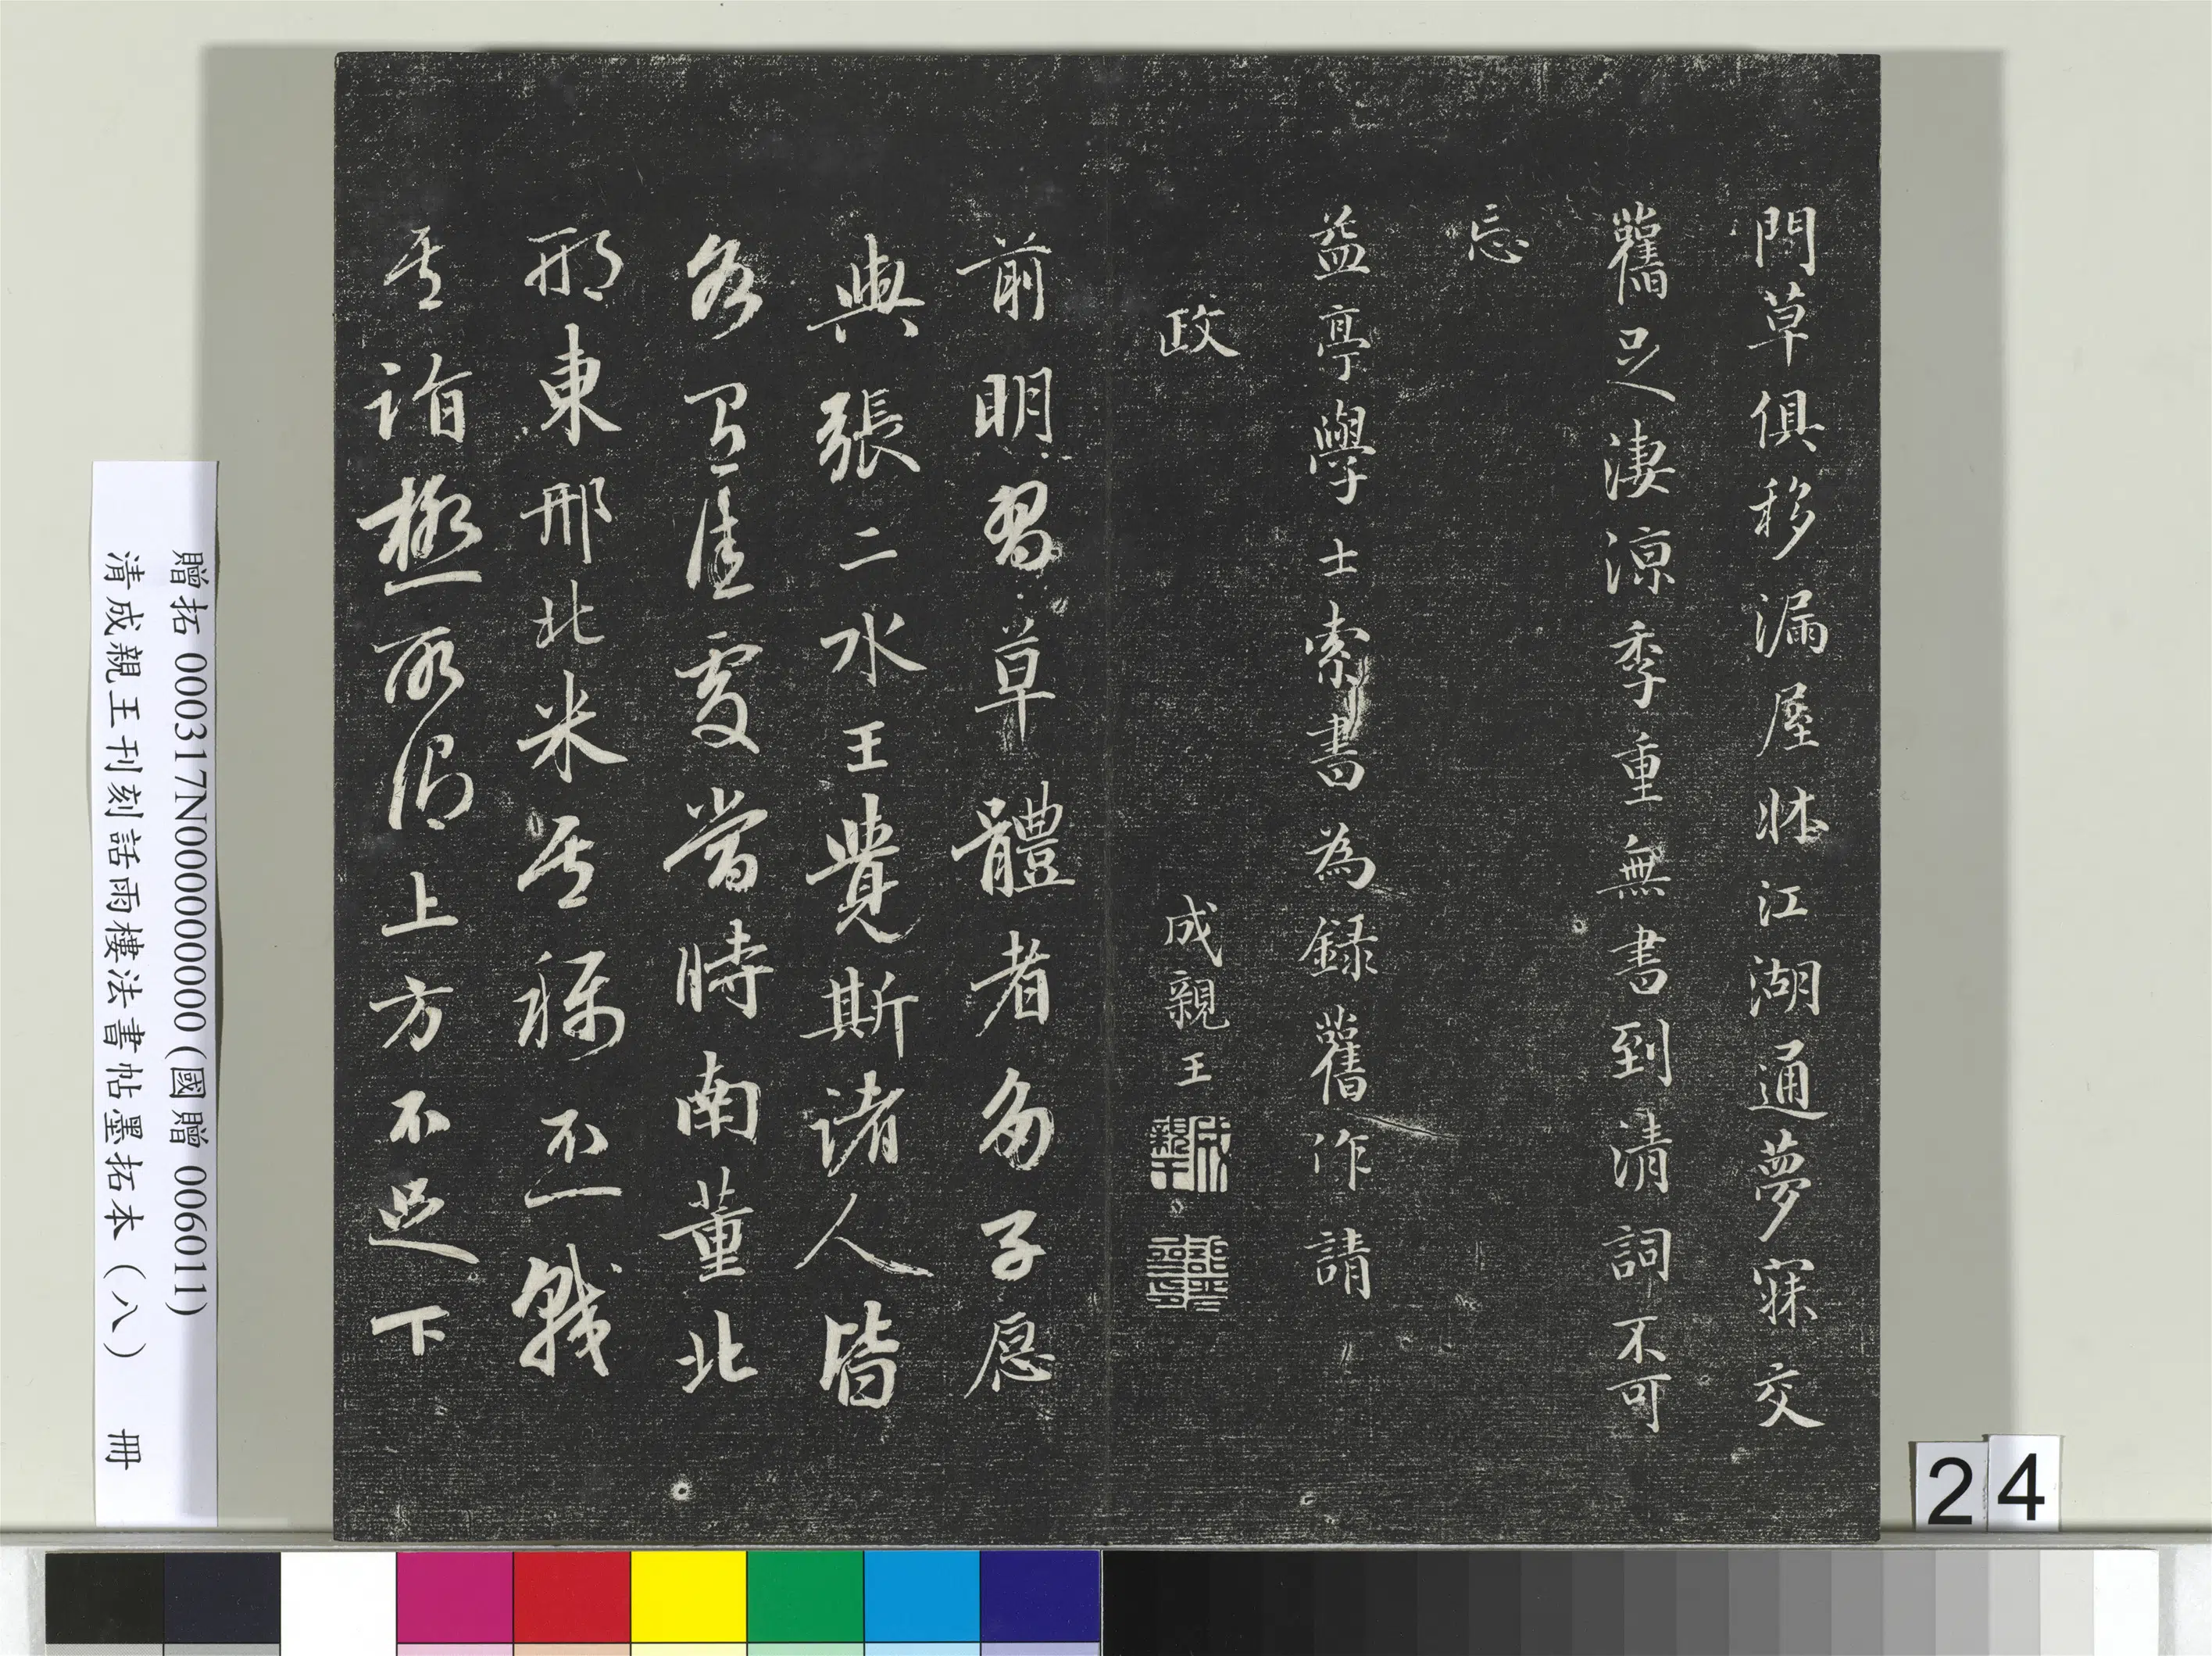 門草俱移漏屋牀江湖通夢寐交
舊足淒涼季重無書到清詞不可
忘
益亭學士索書為錄舊作請
政
成親王
前明習草體者多子愿
與張二水王覺斯諸人皆
各有佳處當時南董北
邢東邢北米吾稱不
其詣極所得上方不足下
贈拓 000317N000000000 (國贈 006011)
清成親王刊刻話雨樓法書帖墨拓本（八） 冊
24